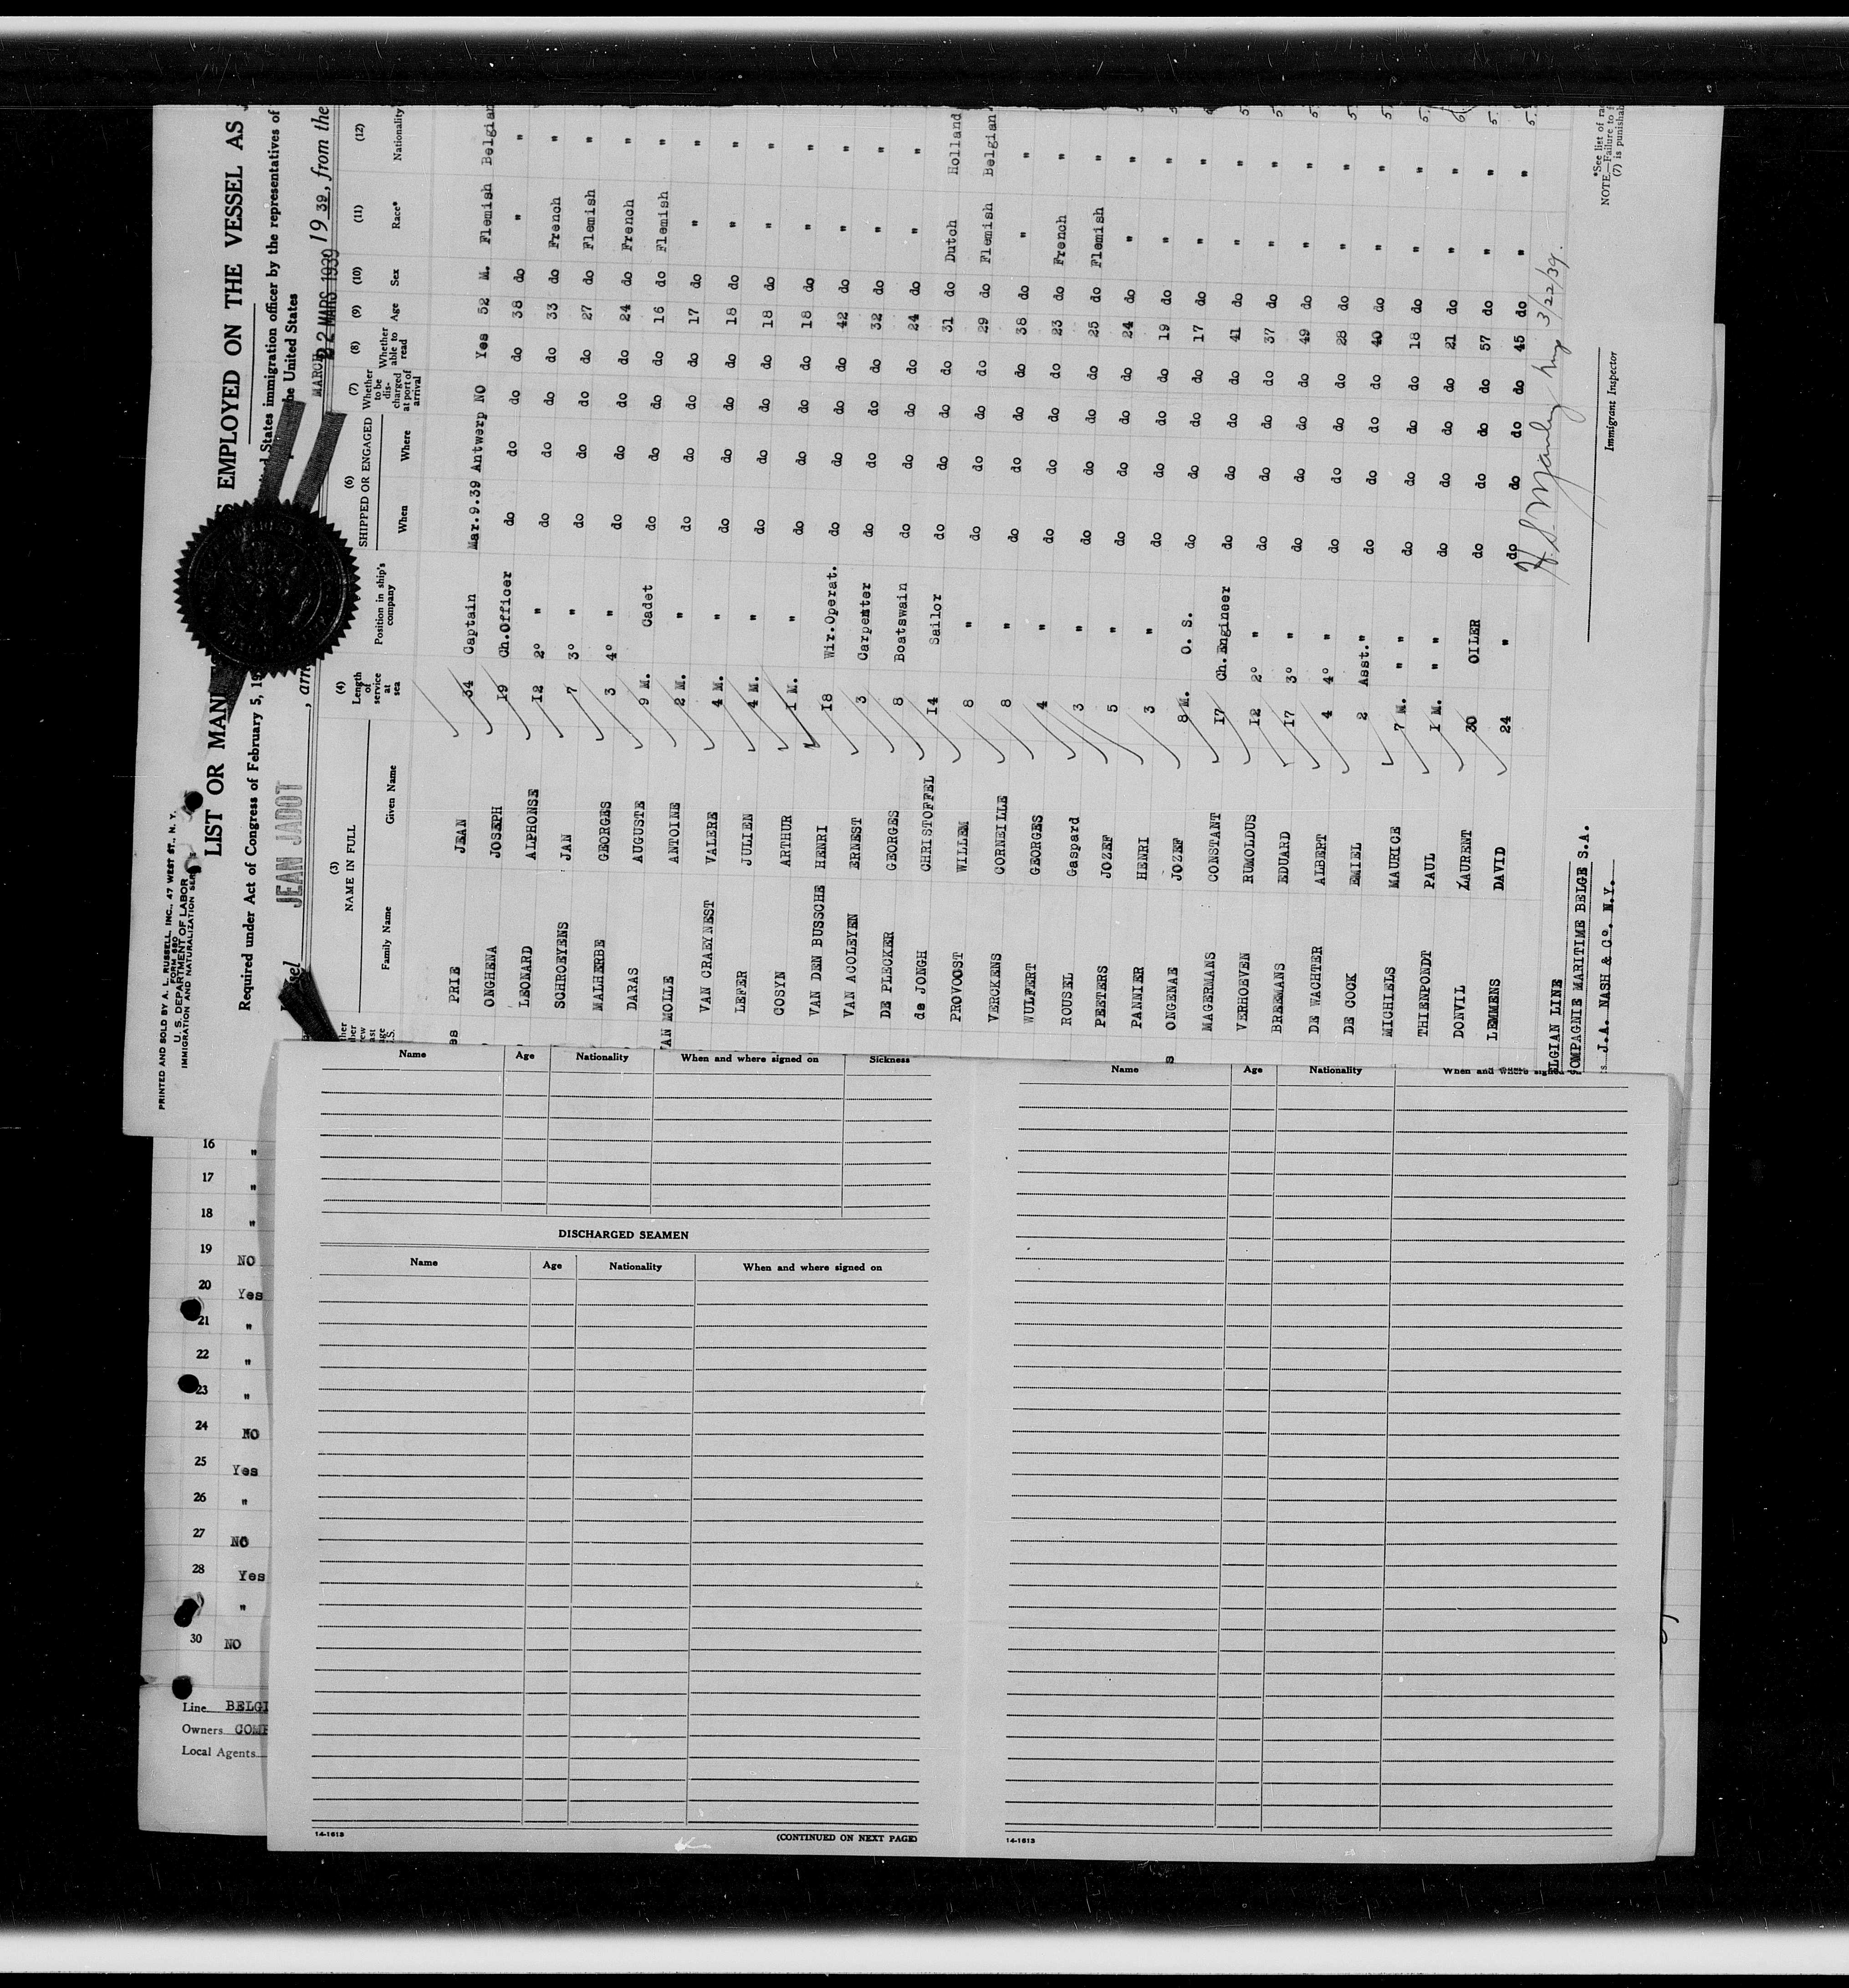 PRINTED AND SOLD BY A. L. RUSSELL, INC., 47 WEST ST., N. Y.
FORM 680
U. S. DEPARTMENT OF LABOR
IMMIGRATION AND NATURALIZATION SER
LIST OR MAN EMPLOYED ON THE VESSEL AS
Required under Act of Congress of February 5, 19 States immigration officer by the representatives of
the United States
JEAN JADOT MARCH 22 MARS 1939 19 39, from the
(3) (4) (6) (7) (8) (9) (10) (11) (12)
NAME IN FULL Length of service at sea Position in ship's company SHIPPED OR ENGAGED Whether to be discharged at port of arrival Whether able to read Age Sex Race* Nationality
Family Name Given Name When Where
PRIE JEAN 34 Captain Mar.9.39 Antwerp NO Yes 52 M. Flemish Belgian
ONGHENA JOSEPH 19 Ch.Officer do do do do 38 do " "
LEONARD ALPHONSE 12 2° " do do do do 33 do French "
SCHROEYENS JAN 7 3° " do do do do 27 do Flemish "
MALHERBE GEORGES 3 4° " do do do do 24 do French "
DARAS AUGUSTE 9 M. Cadet do do do do 16 do Flemish "
VAN MOLLE ANTOINE 2 M. " do do do do 17 do " "
VAN CRAEYNEST VALERE 4 M. " do do do do 18 do " "
LEFER JULIEN 4 M. " do do do do 18 do " "
COSYN ARTHUR 1 M. " do do do do 18 do " "
VAN DEN BUSSCHE HENRI 18 Wir.Operat. do do do do 42 do " "
VAN ACOLEYEN ERNEST 3 Carpenter do do do do 32 do " "
DE PLECKER GEORGES 8 Boatswain do do do do 24 do " "
de JONGH CHRISTOFFEL 14 Sailor do do do do 31 do Dutch Holland
PROVOOST WILLEM 8 " do do do do 29 do Flemish Belgian
VERCKENS CORNEILLE 8 " do do do do 38 do " "
WULFERT GEORGES 4 " do do do do 23 do French "
ROUSEL Gaspard 3 " do do do do 25 do Flemish "
PEETERS JOZEF 5 " do do do do 24 do " "
PANNIER HENRI 3 " do do do do 19 do " "
ONGENAE JOZEF 8 M. O. S. do do do do 17 do " "
MAGERMANS CONSTANT 17 Ch.Engineer do do do do 41 do " "
VERHOEVEN RUMOLDUS 12 2° " do do do do 37 do " "
BREEMANS EDUARD 17 3° " do do do do 49 do " "
DE WACHTER ALBERT 4 4° " do do do do 28 do " "
DE COCK EMIEL 2 Asst." do do do do 40 do " "
MICHIELS MAURICE 7 M. " " do do do do 18 do " "
THIENPONDT PAUL 1 M. " " do do do do 21 do " "
DONVIL LAURENT 30 OILER do do do do 57 do " "
LEMMENS DAVID 24 " do do do do 45 do " "
ELGIAN LINE
COMPAGNIE MARITIME BELGE S.A.
J.A. NASH & Co. N.Y.
3/22/39.
Immigrant Inspector
*See list of ra
NOTE.—Failure to f
(7) is punishab
Name Age Nationality When and where signed on Sickness
DISCHARGED SEAMEN
Name Age Nationality When and where signed on
14-1613 (CONTINUED ON NEXT PAGE)
Name Age Nationality When and where signed
14-1613
16 "
17 "
18 "
19 NO
20 Yes
21 "
22 "
23 "
24 NO
25 Yes
26 "
27 NO
28 Yes
"
30 NO
Line BELGI
Owners COMP
Local Agents